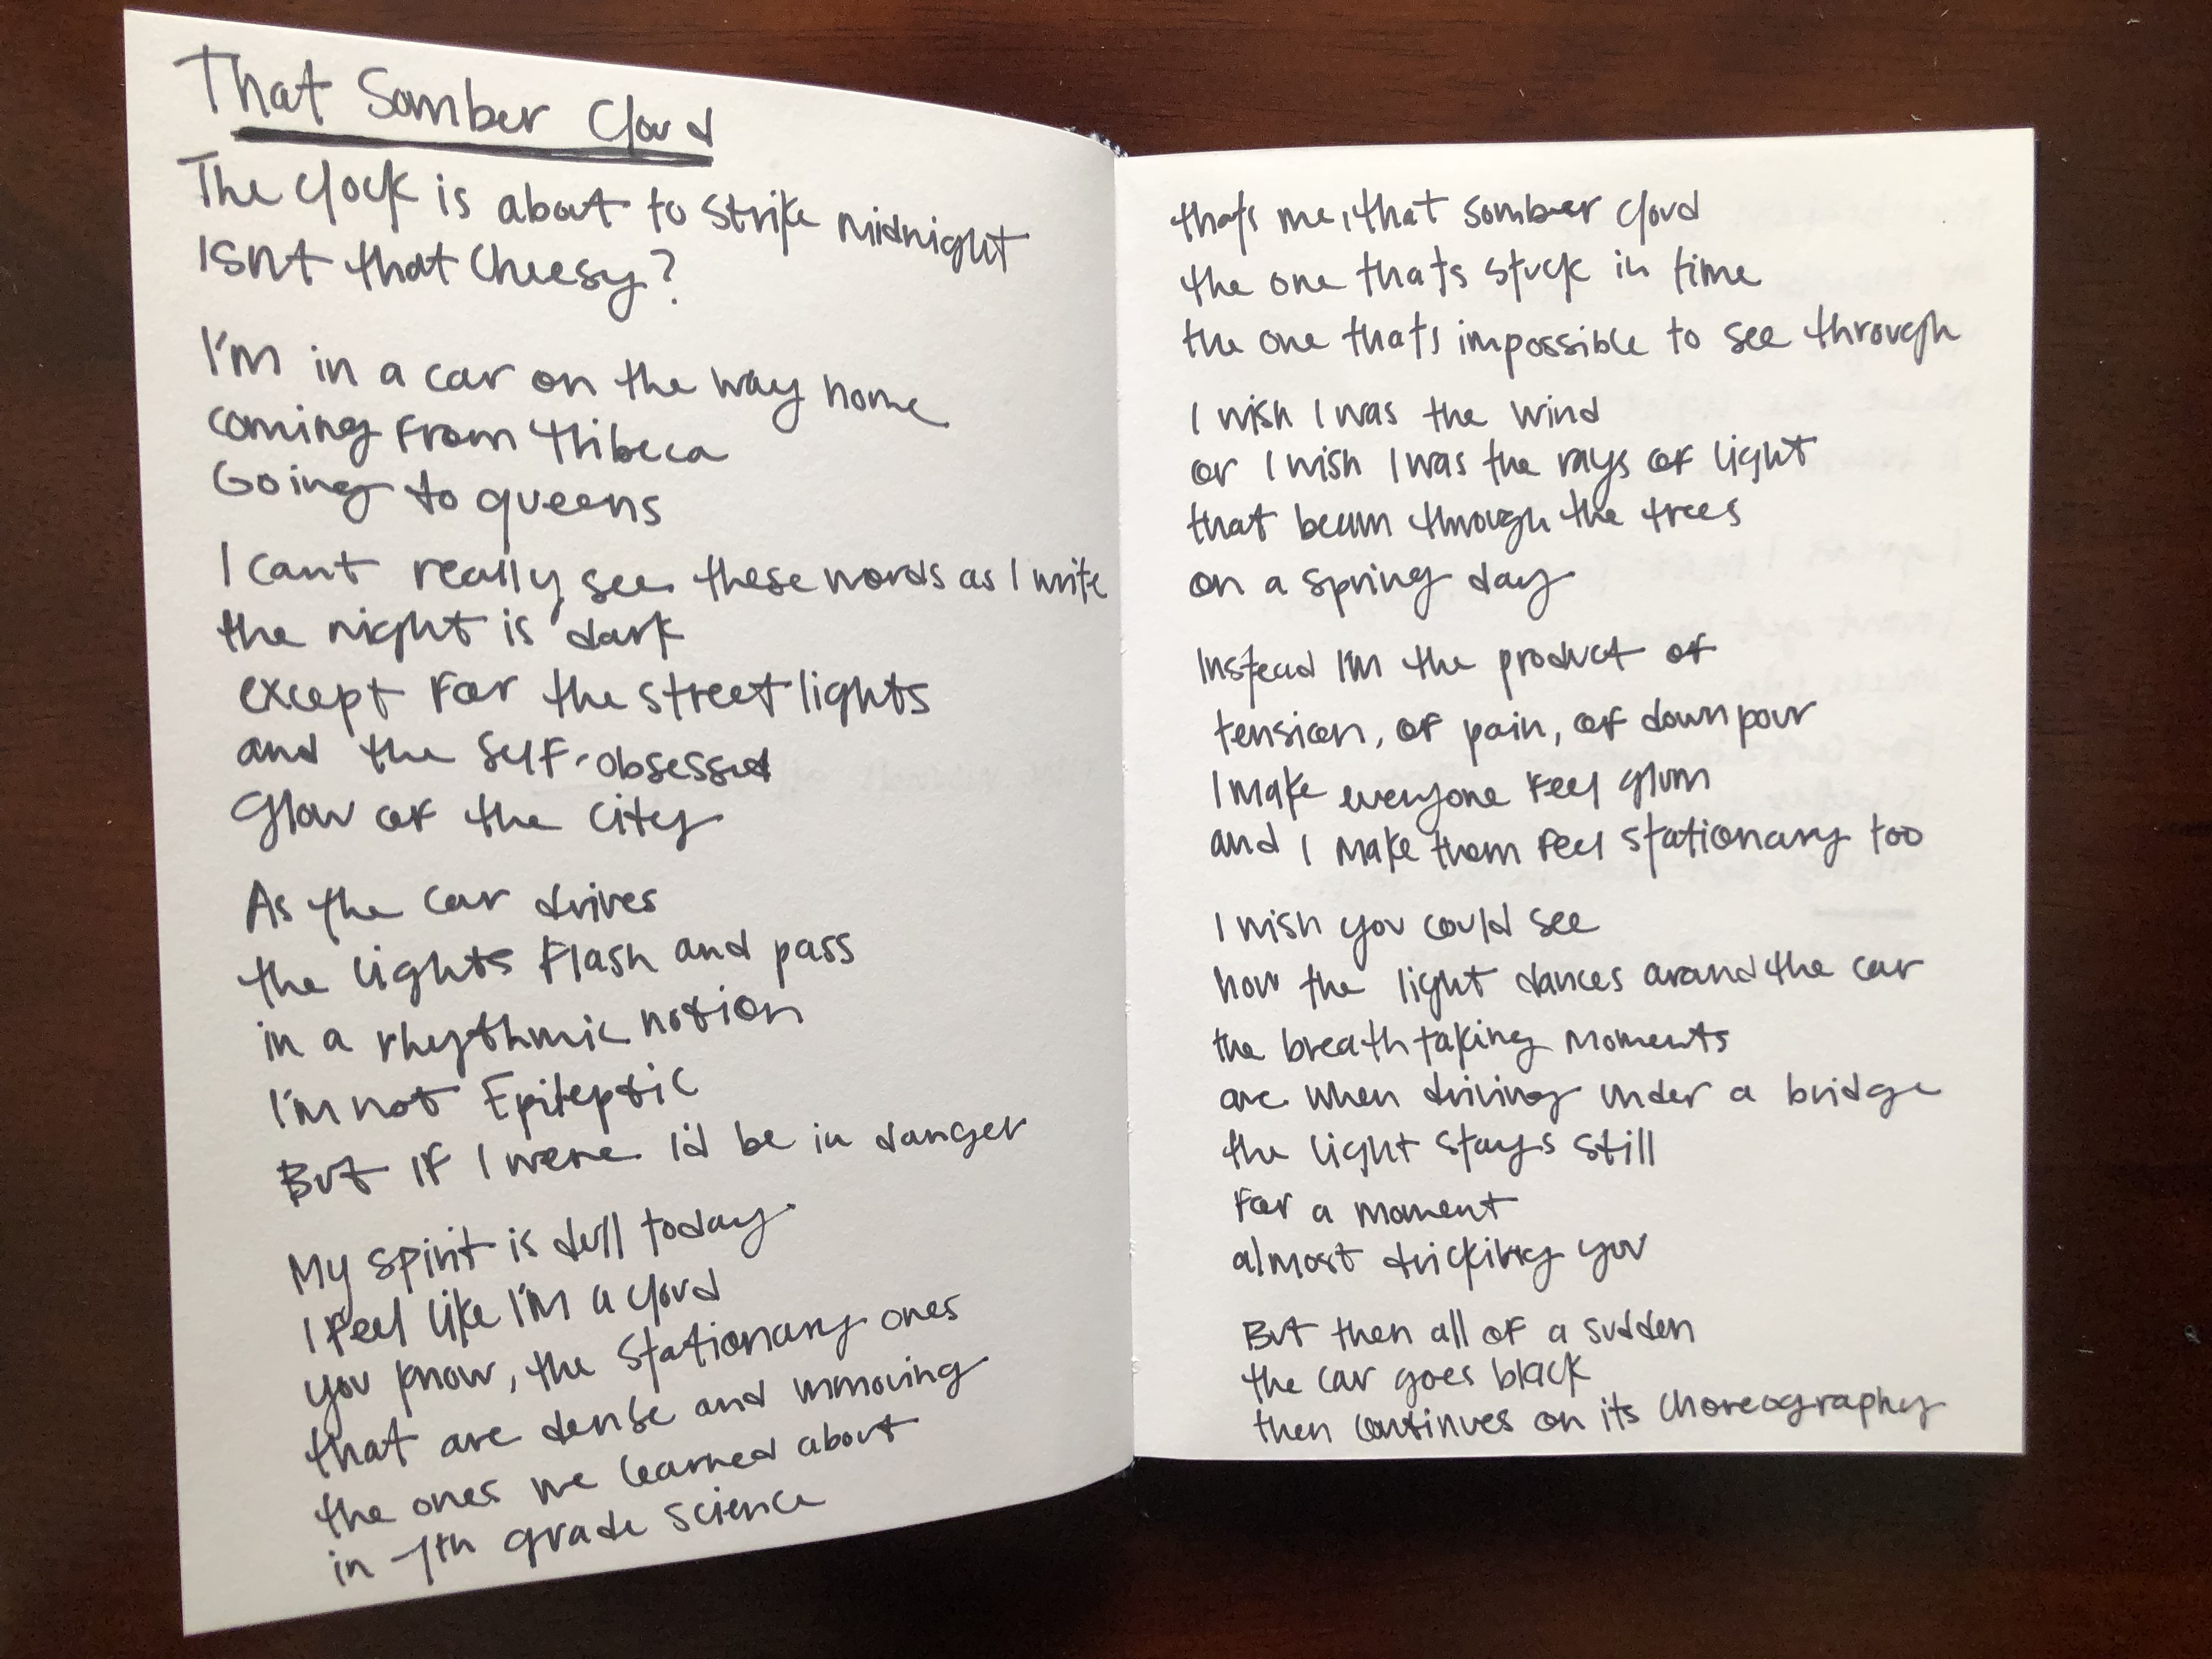 That Somber Cloud
The clock is about to strike midnight
Isn't that cheesy?
I'm in a car on the way home
coming from tribeca
Going to queens
I can't really see these words as I write
the night is dark
except for the street lights
and the self-obsessed
Glow of the city
As the car drives
the lights flash and pass
in a rhythmic notion
I'm not Epileptic
But if I were I'd be in danger
My spirit is dull today
I feel like I'm a cloud
you know, the stationary ones
that are dense and unmoving
the ones we learned about
in 7th grade science
that's me, that somber cloud
the one that's stuck in time
the one that's impossible to see through
I wish I was the wind
or I wish I was the rays of light
that beam through the trees
on a spring day
Instead I'm the product of
tension, of pain, of downpour
I make everyone feel glum
and I make them feel stationary too
I wish you could see
how the light dances around the car
the breathtaking moments
are when driving under a bridge
the light stays still
for a moment
almost tricking you
But then all of a sudden
the car goes black
then continues on its choreography